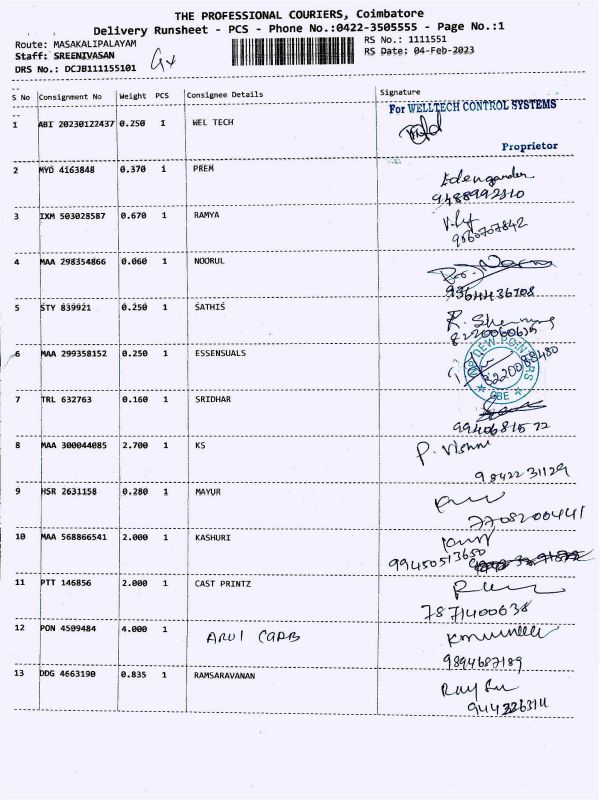 THE PROFESSIONAL COURIERS, Coimbatore
Delivery Runsheet - PCS - Phone No.:0422-3505555 - Page No.:1
Route: MASAKALIPALAYAM RS No.: 1111551
Staff: SREENIVASAN RS Date: 04-Feb-2023
DRS No.: DCJB111155101
S No Consignment No Weight PCS Consignee Details Signature
For WELLTECH CONTROL SYSTEMS
1 ABI 20230122437 0.250 1 WEL TECH
Proprietor
2 MYD 4163848 0.370 1 PREM
9488992310
3 IXM 503028587 0.670 1 RAMYA
9566707842
4 MAA 298354866 0.060 1 NOORUL
9364436708
5 STY 839921 0.250 1 SATHIS
8220060635
6 MAA 299358152 0.250 1 ESSENSUALS
8220088480
DEW POINTERS
CBE
7 TRL 632763 0.160 1 SRIDHAR
9940681572
8 MAA 300044085 2.700 1 KS
P. Vishnu
9842231129
9 HSR 2631158 0.280 1 MAYUR
7708200441
10 MAA 568866541 2.000 1 KASHURI
99450513650
11 PTT 146856 2.000 1 CAST PRINTZ
7871400638
12 PON 4509484 4.000 1 ARUL CARB
9894687189
13 DDG 4663190 0.835 1 RAMSARAVANAN
944326314